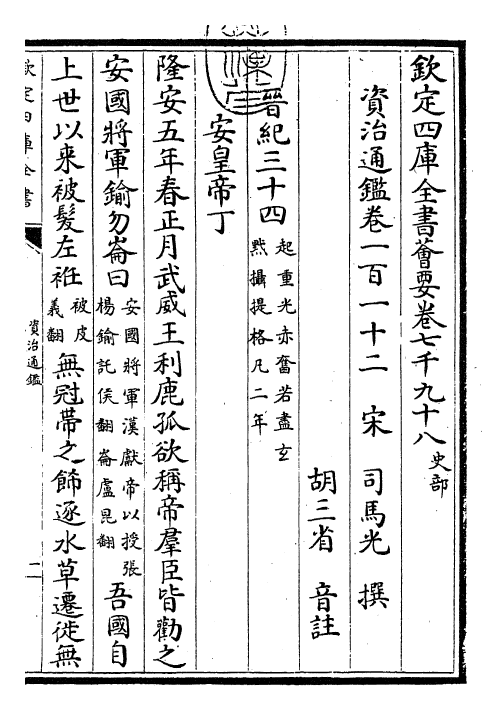 欽定四庫全書薈要卷七千九十八 史部
資治通鑑卷一百一十二 宋 司馬光 撰
胡三省 音註
晉紀三十四 起重光赤奮若盡玄黓攝提格凡二年
安皇帝丁
隆安五年春正月武威王利鹿孤欲稱帝羣臣皆勸之
安國將軍鍮勿崙曰 安國將軍漢獻帝以授張楊鍮託侯翻崙盧昆翻 吾國自
上世以来被髮左袵 被皮義翻 無冠帶之飾逐水草遷徙無
欽定四庫全書
資治通鑑
二